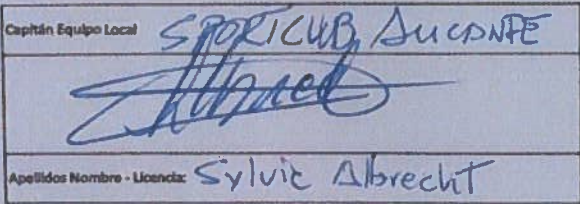 Capitán Equipo Local SPORTCLUB ALICANTE
Apellidos Nombre - Licencia: Sylvie Albrecht